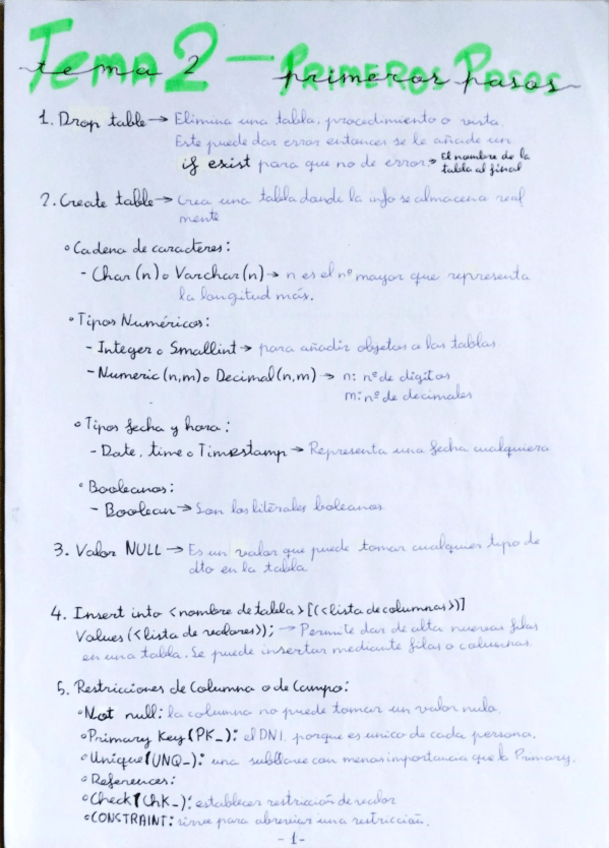 Tema 2 - PRIMEROS PASOS
tema 2 primeros pasos
1. Drop table → Elimina una tabla, procedimiento o vista.
Este puede dar error entonces se le añade un
if exist para que no de error → El nombre de la
tabla al final
2. Create table → Crea una tabla donde la info se almacena real
mente
• Cadena de caracteres:
- Char (n) o Varchar (n) → n es el nº mayor que representa
la longitud máx.
• Tipos Numéricos:
- Integer o Smallint → para añadir objetos a las tablas
- Numeric (n,m) o Decimal (n,m) → n: nº de dígitos
m: nº de decimales
• Tipos fecha y hora:
- Date, time o Timestamp → Representa una fecha cualquiera
• Booleanos:
- Boolean → Son los literales boleanos
3. Valor NULL → Es un valor que puede tomar cualquier tipo de
dto en la tabla
4. Insert into <nombre de tabla> [(<lista de columnas>)]
Values (<lista de valores>); → Permite dar de alta nuevas filas
en una tabla. Se puede insertar mediante filas o columnas.
5. Restricciones de Columna o de Campo:
• Not null: la columna no puede tomar un valor nulo.
• Primary Key (PK_): el DNI porque es unico de cada persona.
• Unique (UNQ_): una subllave con menos importancia que la Primary.
• References:
• Check (Chk_): establecer restricción de valor
• CONSTRAINT: sirve para abreviar una restricción.
- 1 -